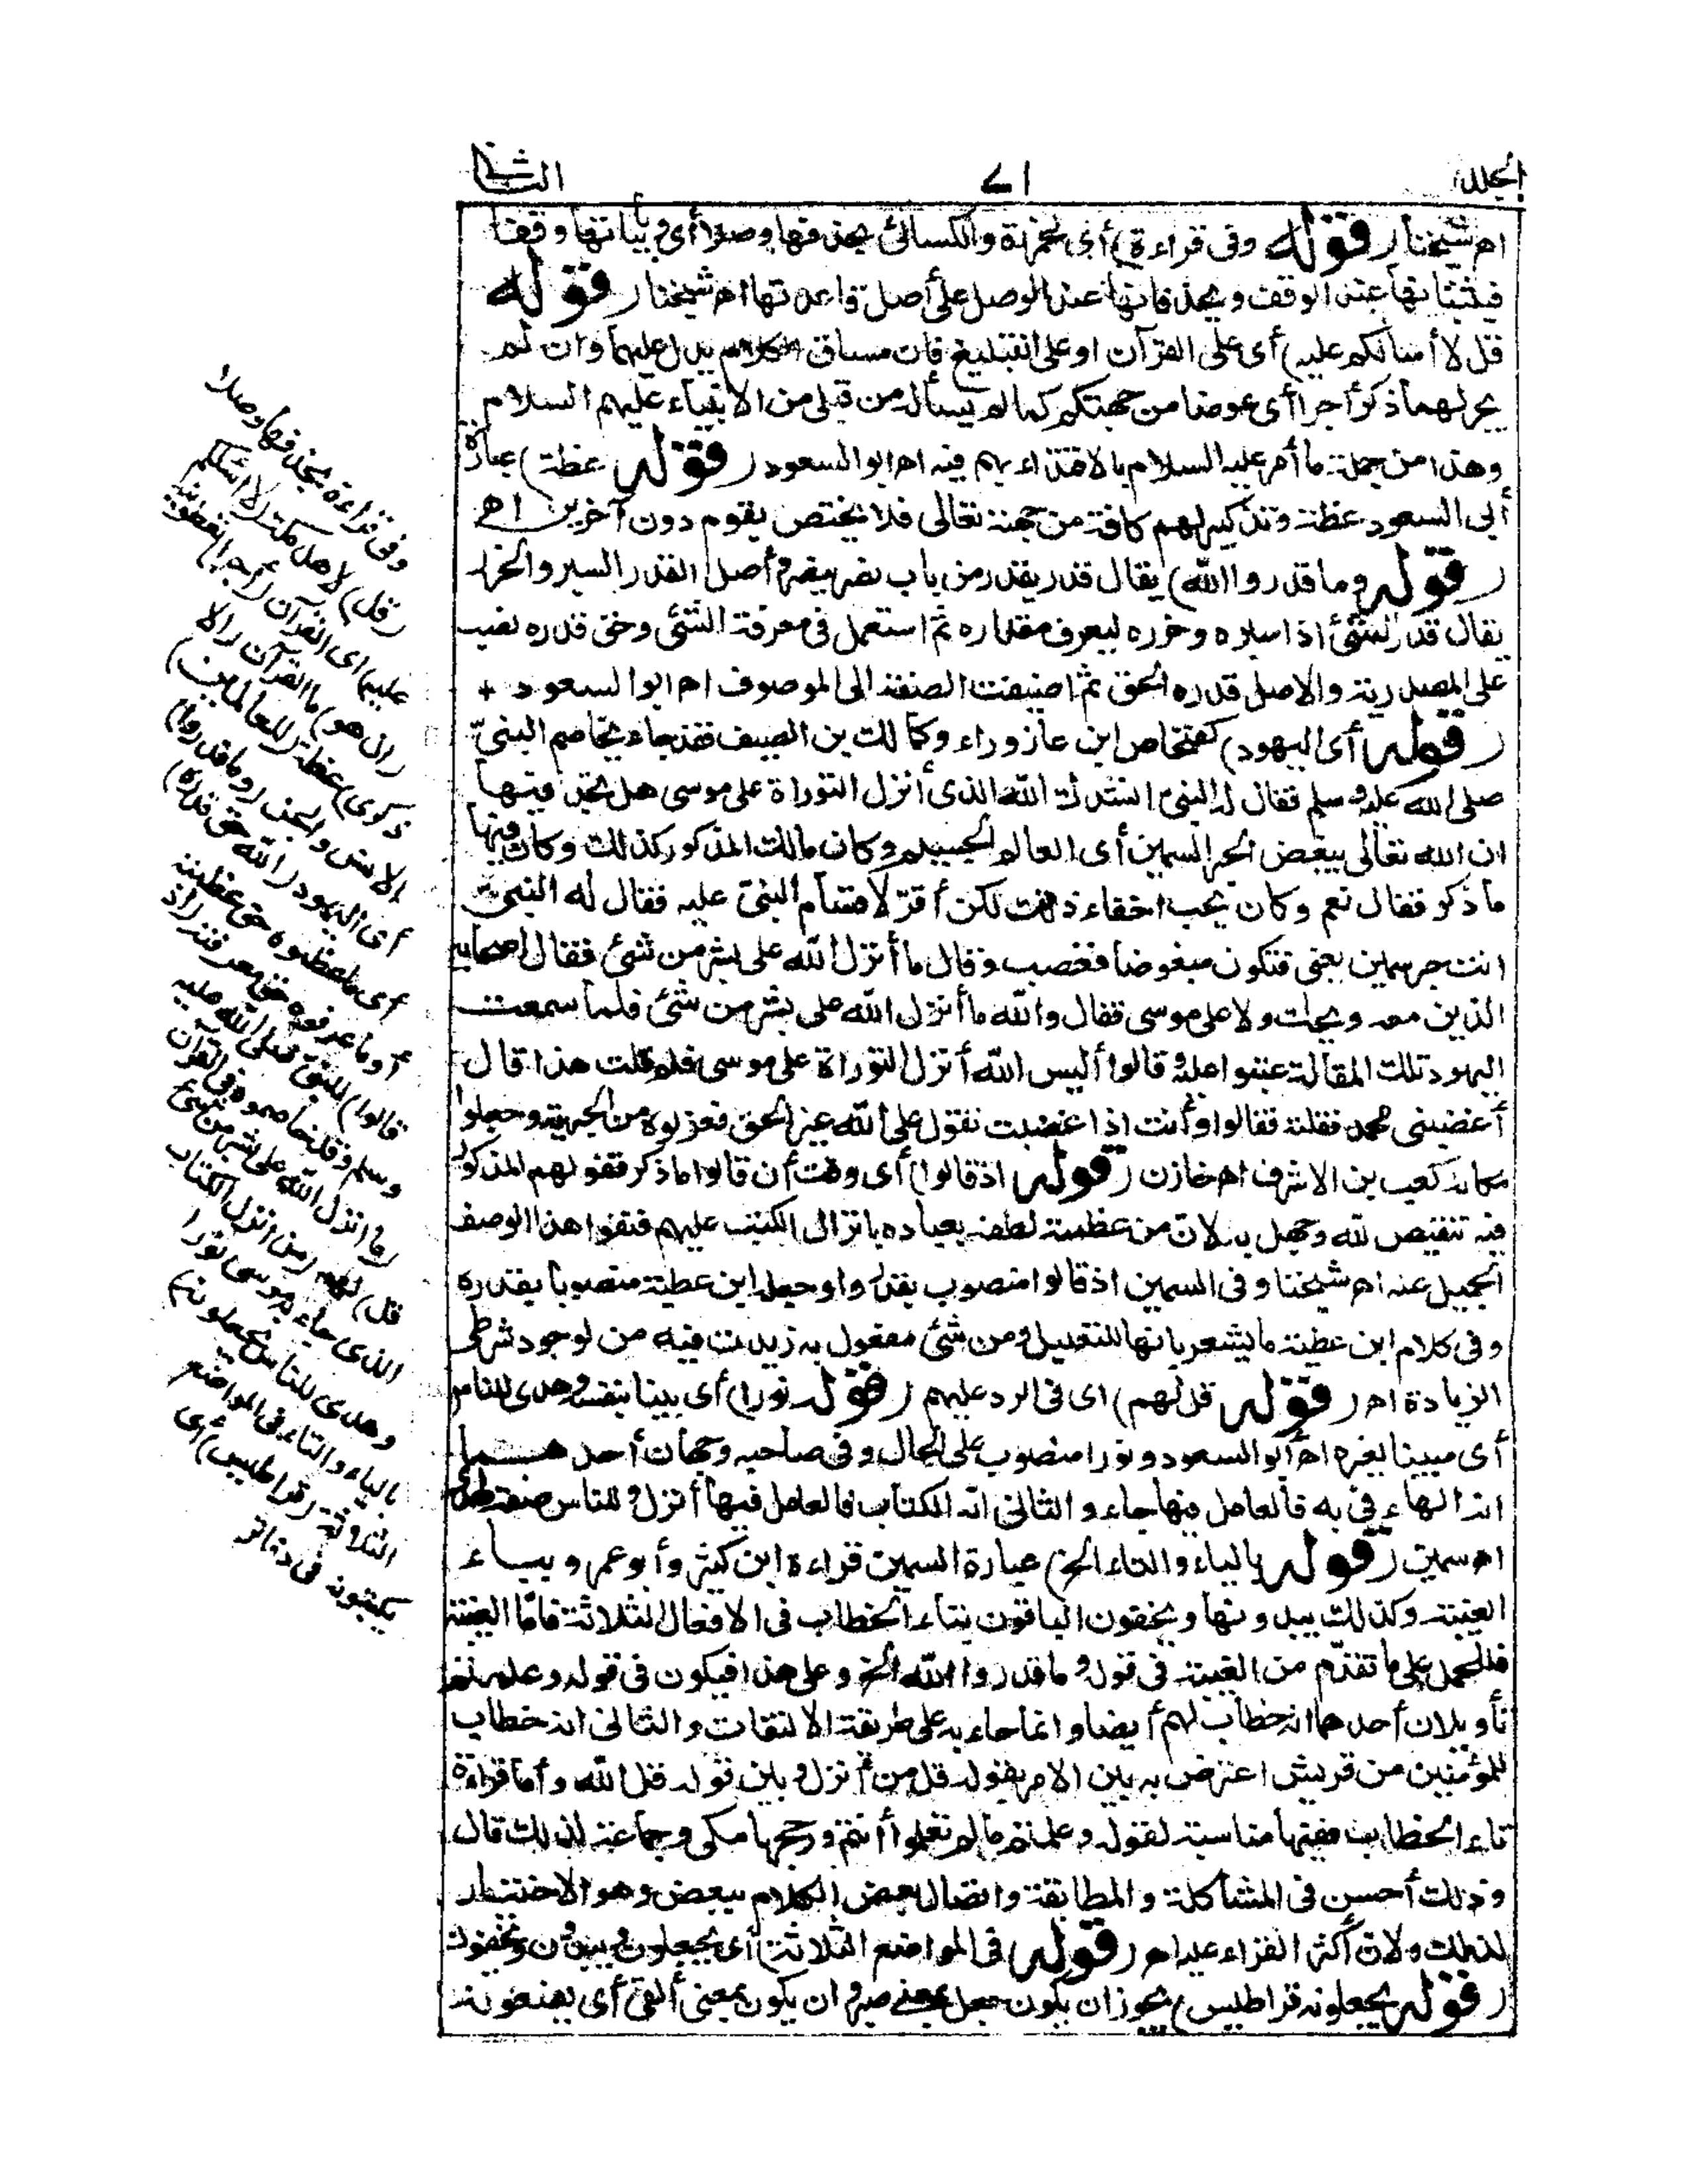 الجلد ٧١ الثانى
اه شيخنا (قوله وفى قراءة) أى لحمزة والكسائى بحذفها وصلا أى وبإثباتها وقفا
فيثبتانها عند الوقف ويحذفانها عند الوصل على أصل قاعدتها اه شيخنا (قوله
قل لا أسألكم عليه) أى على القرآن او على التبليغ فان مساق الكلام يدل عليهما وان لم
يجر لهما ذكر أجرا أى عوضا من جهتكم كما لم يسأله من قبلى من الانبياء عليهم السلام
وهذا من جملة ما أمر عليه السلام بالاقتداء بهم فيه اه ابو السعود (قوله عظة) عبارة
أبى السعود عظة وتذكير لهم كافة من جهته تعالى فلا يختص بقوم دون آخرين اه
(قوله وما قدروا الله) يقال قدر يقدر من باب نصر ينصر وأصل القدر السبر والحزر
يقال قدر الشئ اذا سبره وحزره ليعرف مقداره ثم استعمل فى معرفة الشئ وحق قدره نصب
على المصدرية والاصل قدره الحق ثم اضيفت الصفة الى الموصوف اه ابو السعود +
(قوله أى اليهود) كفنحاص ابن عازوراء وكمالك بن الصيف فقد جاء يخاصم النبىّ
صلى الله عليه وسلم فقال له النبى انشدك الله الذى أنزل التوراة على موسى هل تجد فيها
ان الله تعالى يبغض الحبر السمين أى العالم الجسيم وكان مالك المذكور كذلك وكان فيها
ما ذكر فقال نعم وكان يحب اخفاء ذلك لكن أقرّ لاقسام النبىّ عليه فقال له النبىّ
انت حبر سمين يعنى فتكون مبغوضا فغضب وقال ما أنزل الله على بشر من شئ فقال اصحابه
الذين معه ويحك ولا على موسى فقال والله ما أنزل الله على بشر من شئ فلما سمعت
اليهود تلك المقالة عتبوا عليه وقالوا أليس الله أنزل التوراة على موسى فلم قلت هذا قال
أغضبنى محمد فقلته فقالوا وأنت اذا غضبت تقول على الله غير الحق فعزلوه من الحبرية وجعلوا
مكانه كعب بن الاشرف اه خازن (قوله اذ قالوا) أى وقت أن قالوا ما ذكر فقولهم المذكور
فيه تنقيص لله وجهل به لان من عظمته لطفه بعباده بانزال الكتب عليهم فنفوا هذا الوصف
الجميل عنه اه شيخنا وفى السمين اذ قالوا منصوب بقدروا وجعله ابن عطية منصوبا بقدره
وفى كلام ابن عطية ما يشعر بانها للتعليل ومن شئ مفعول به زيدت فيه من لوجود شرطى
الزيادة اه (قوله قل لهم) اى فى الرد عليهم (قوله نورا) أى بينا بنفسه وهدى للناس
أى مبينا لغيره اه أبو السعود ونورا منصوب على الحال وفى صاحبه وجهان أحدهما
انه الهاء فى به فالعامل فيها جاء والثانى انه الكتاب فالعامل فيها أنزل وللناس صفة لهدى
اه سمين (قوله بالياء والتاء الخ) عبارة السمين قراءة ابن كثير وأبو عمرو بياء
الغيبة وكذلك يبدونها ويخفون الباقون بتاء الخطاب فى الافعال الثلاثة فامّا الغيبة
فللحمل على ما تقدّم من الغيبة فى قوله وما قدروا الله الخ وعلى هذا فيكون فى قوله وعلمتم
تأويلان أحدهما انه خطاب لهم أيضا وانما جاء به على طريقة الالتفات والثانى انه خطاب
للمؤمنين من قريش اعترض به بين الامر بقوله قل من أنزل وبين قوله قل الله وأما قراءة
تاء الخطاب ففيها مناسبة لقوله وعلمتم ما لم تعلموا أنتم ورجحها مكى وجماعة لذلك قال
وذلك أحسن فى المشاكلة والمطابقة واتصال بعض الكلام ببعض وهو الاختيار
لذلك ولان أكثر القراء عليه اه (قوله فى المواضع الثلاثة) أى يجعلون ويبدون ويخفون
(قوله يجعلونه قراطيس) يجوز ان يكون جعل بمعنى صير وان يكون بمعنى ألقى أى يضعونه
وفى قراءة بحذفها وصلا
(قل) لاهل مكة (لا اسئلكم
عليه) اى القرآن (أجرا) تعطونيه
(ان هو) ما القرآن (الا
ذكرى) عظة (للعالمين)
الانس والجن (وما قدروا)
أى اليهود (الله حق قدره)
أى ما عظموه حق عظمته
أو ما عرفوه حق معرفته (اذ
قالوا) للنبىّ صلى الله عليه
وسلم وقد خاصموه فى القرآن
(ما انزل الله على بشر من شئ
قل) لهم (من انزل الكتاب
الذى جاء به موسى نورا
وهدى للناس يجعلونه)
بالياء والتاء فى المواضع
الثلاثة (قراطيس) أى
يكتبونه فى دفاتر